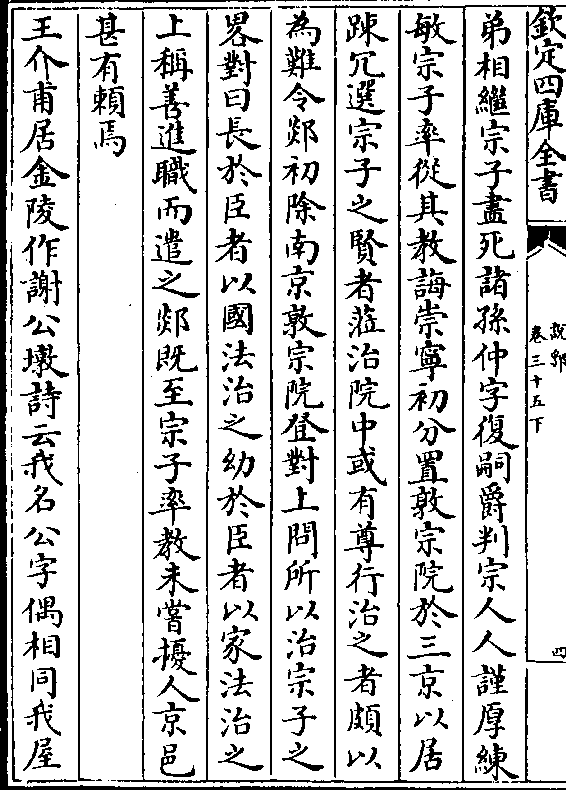 欽定四庫全書
說郛
卷三十五下
四
弟相繼宗子盡死諸孫仲字復嗣爵判宗人人謹厚練
敏宗子率從其教誨崇寧初分置敦宗院於三京以居
踈冗選宗子之賢者蒞治院中或有尊行治之者頗以
為難令郯初除南京敦宗院登對上問所以治宗子之
畧對曰長於臣者以國法治之幼於臣者以家法治之
上稱善進職而遣之郯既至宗子率教未嘗擾人京邑
甚有賴焉
王介甫居金陵作謝公墩詩云我名公字偶相同我屋